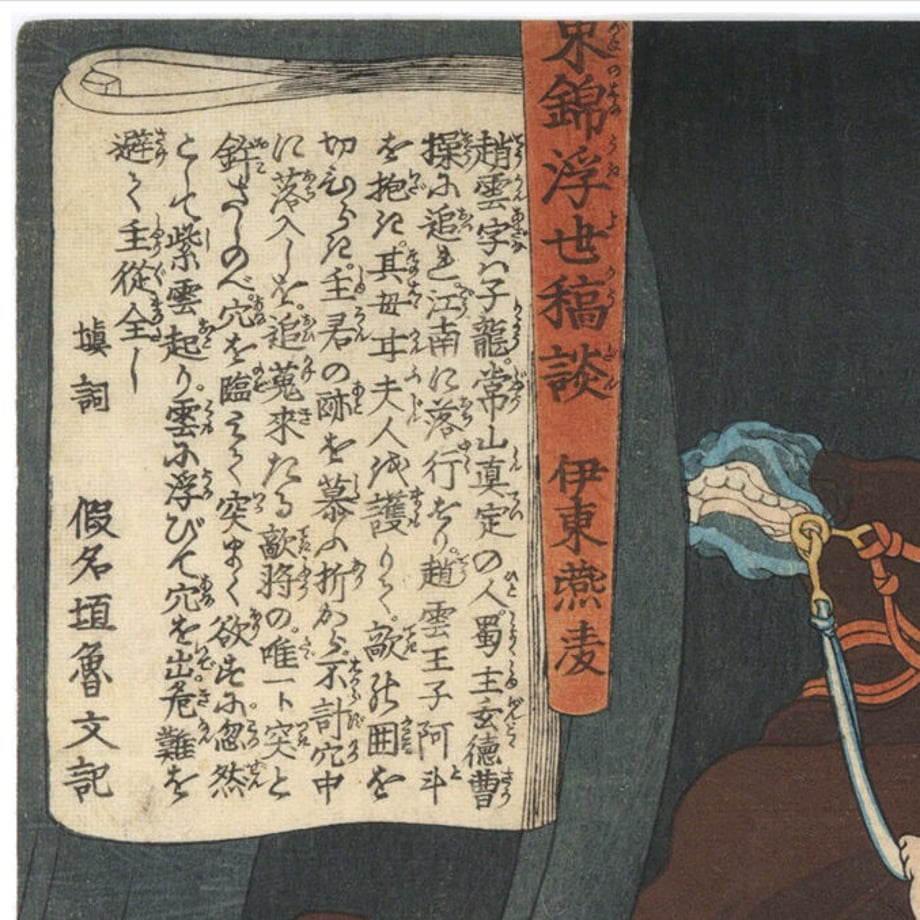 東錦浮世稿談
伊東燕凌
趙雲字ハ子龍。常山真定の人。蜀主玄徳曹
操に追れ。江南に落行せり。趙雲王子阿斗
を抱き。其母甘夫人を護りて。敵の囲を
切ひらき。主君の跡を慕ふ折から。不計穴中
に落入しを。追蒐来たる敵将の。唯一ト突と
鉾さしのべ。穴を臨みて突まく欲せに忽然
として紫雲起り。雲に浮びて穴を出危難を
避て主従全し
塡詞 假名垣魯文記